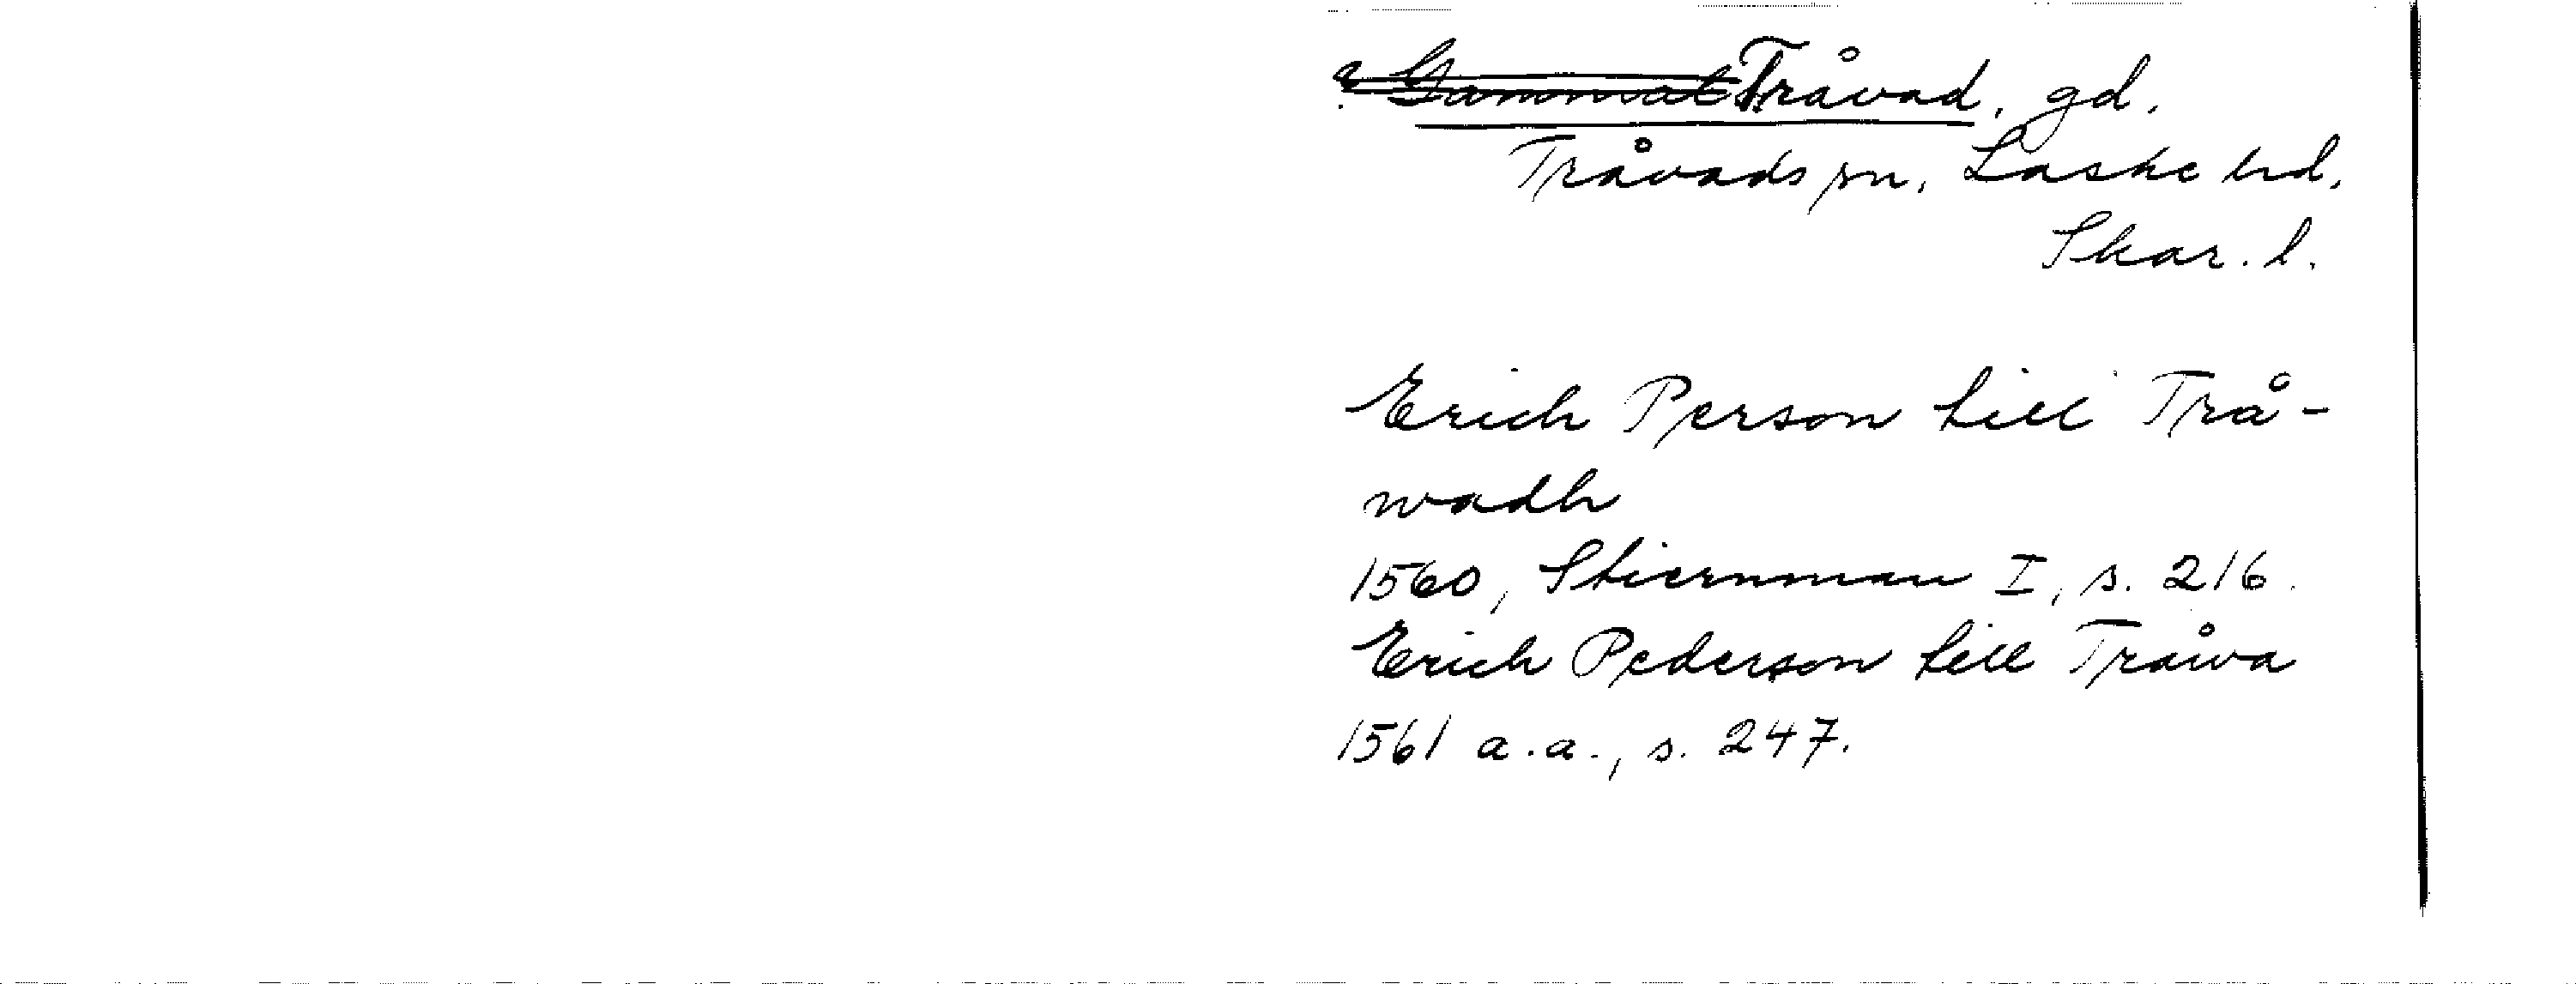 ? Gammal Tråvad, gd.
Tråvads sn, Laske hd,
Skar. l.
Erich Person till Trå-
wadh
1560, Stiernman I, s. 216.
Erich Pederson till Tråwa
1561 a.a., s. 247.